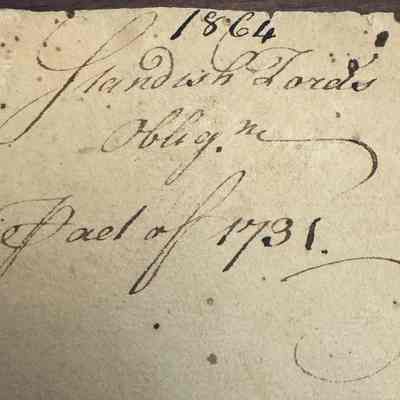 1864
Standish Ford's
Oblig.n
Part of 1731.